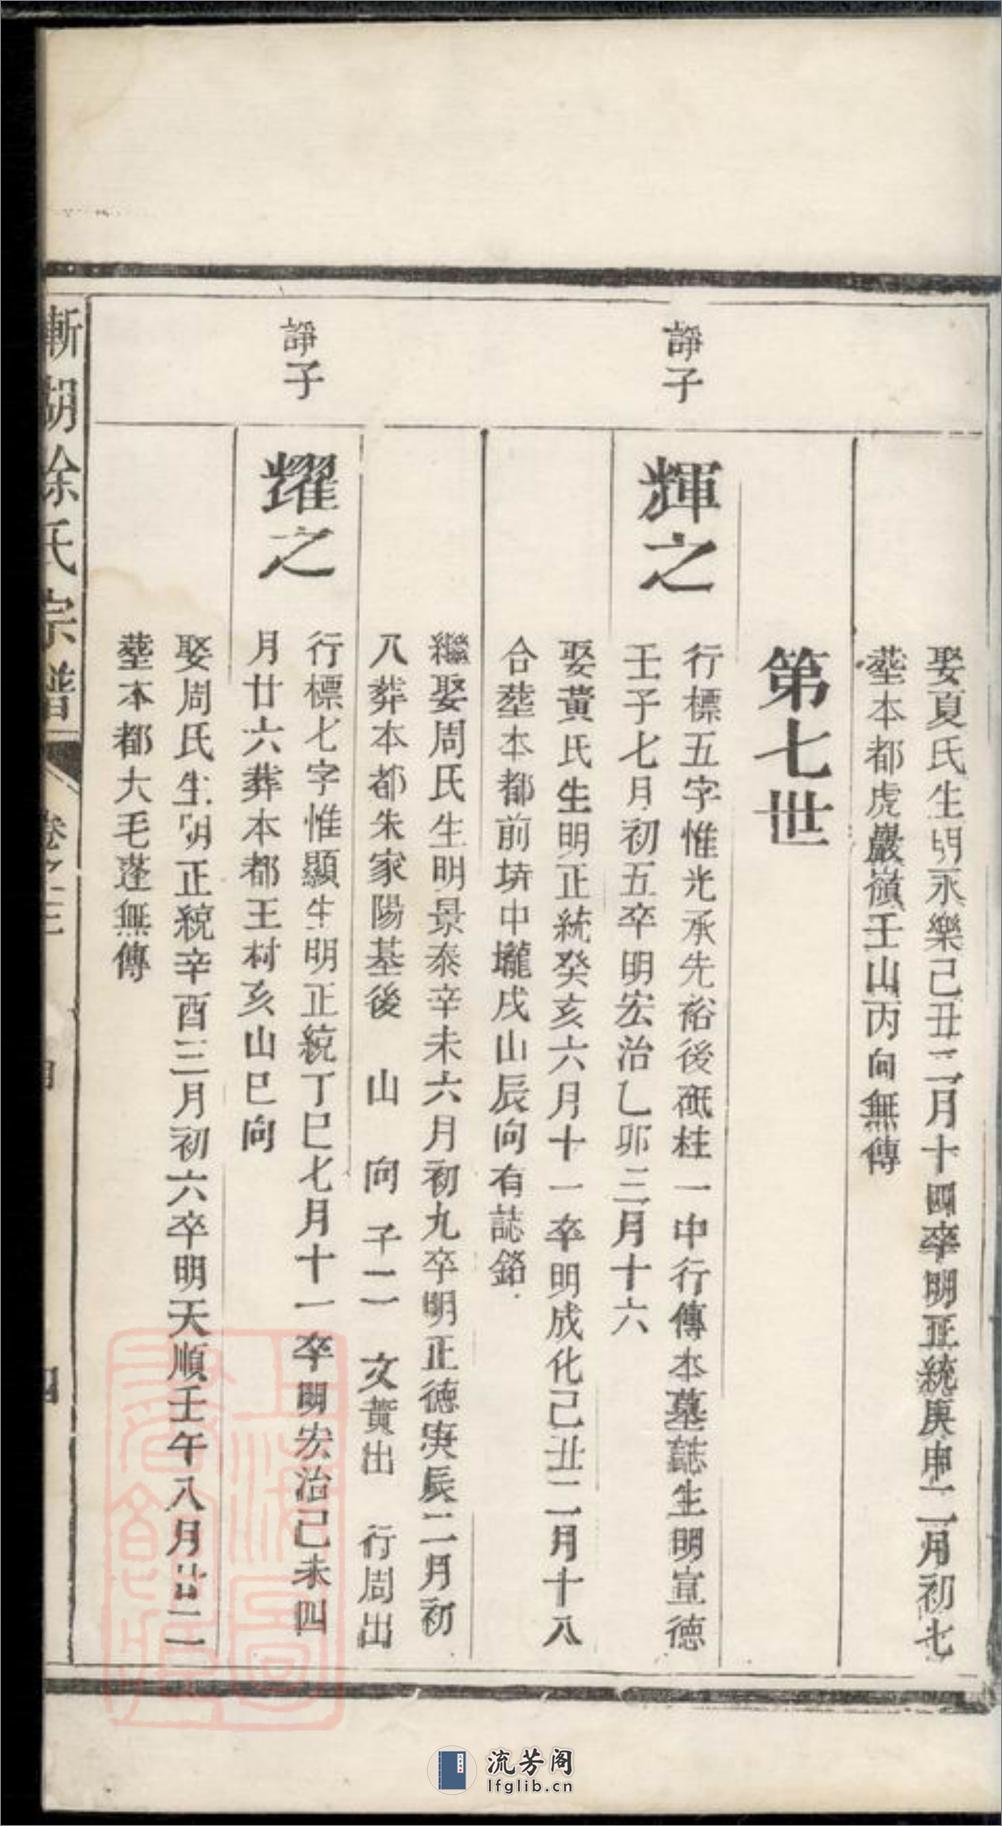 娶夏氏生明永樂己丑二月十四卒明正統庚申二月初七
塟本都虎巖嶺壬山丙向無傳
第七世
諍子
輝之
行標五字惟光承先裕後砥柱一中行傳本墓誌生明宣德
壬子七月初五卒明宏治乙卯三月十六
娶黃氏生明正統癸亥六月十一卒明成化己丑二月十八
合塟本都前塝中壠戌山辰向有誌銘
繼娶周氏生明景泰辛未六月初九卒明正德庚辰二月初
八葬本都朱家陽基後　山　向　子二　文黃出　行周出
諍子
耀之
行標七字惟顯生明正統丁巳七月十一卒明宏治己未四
月廿六葬本都王村亥山巳向
娶周氏生明正統辛酉三月初六卒明天順壬午八月廿二
塟本都大毛蓬無傳
漸湖徐氏宗譜
卷之三
四
上海圖書館藏
流芳阁
lfglib.cn